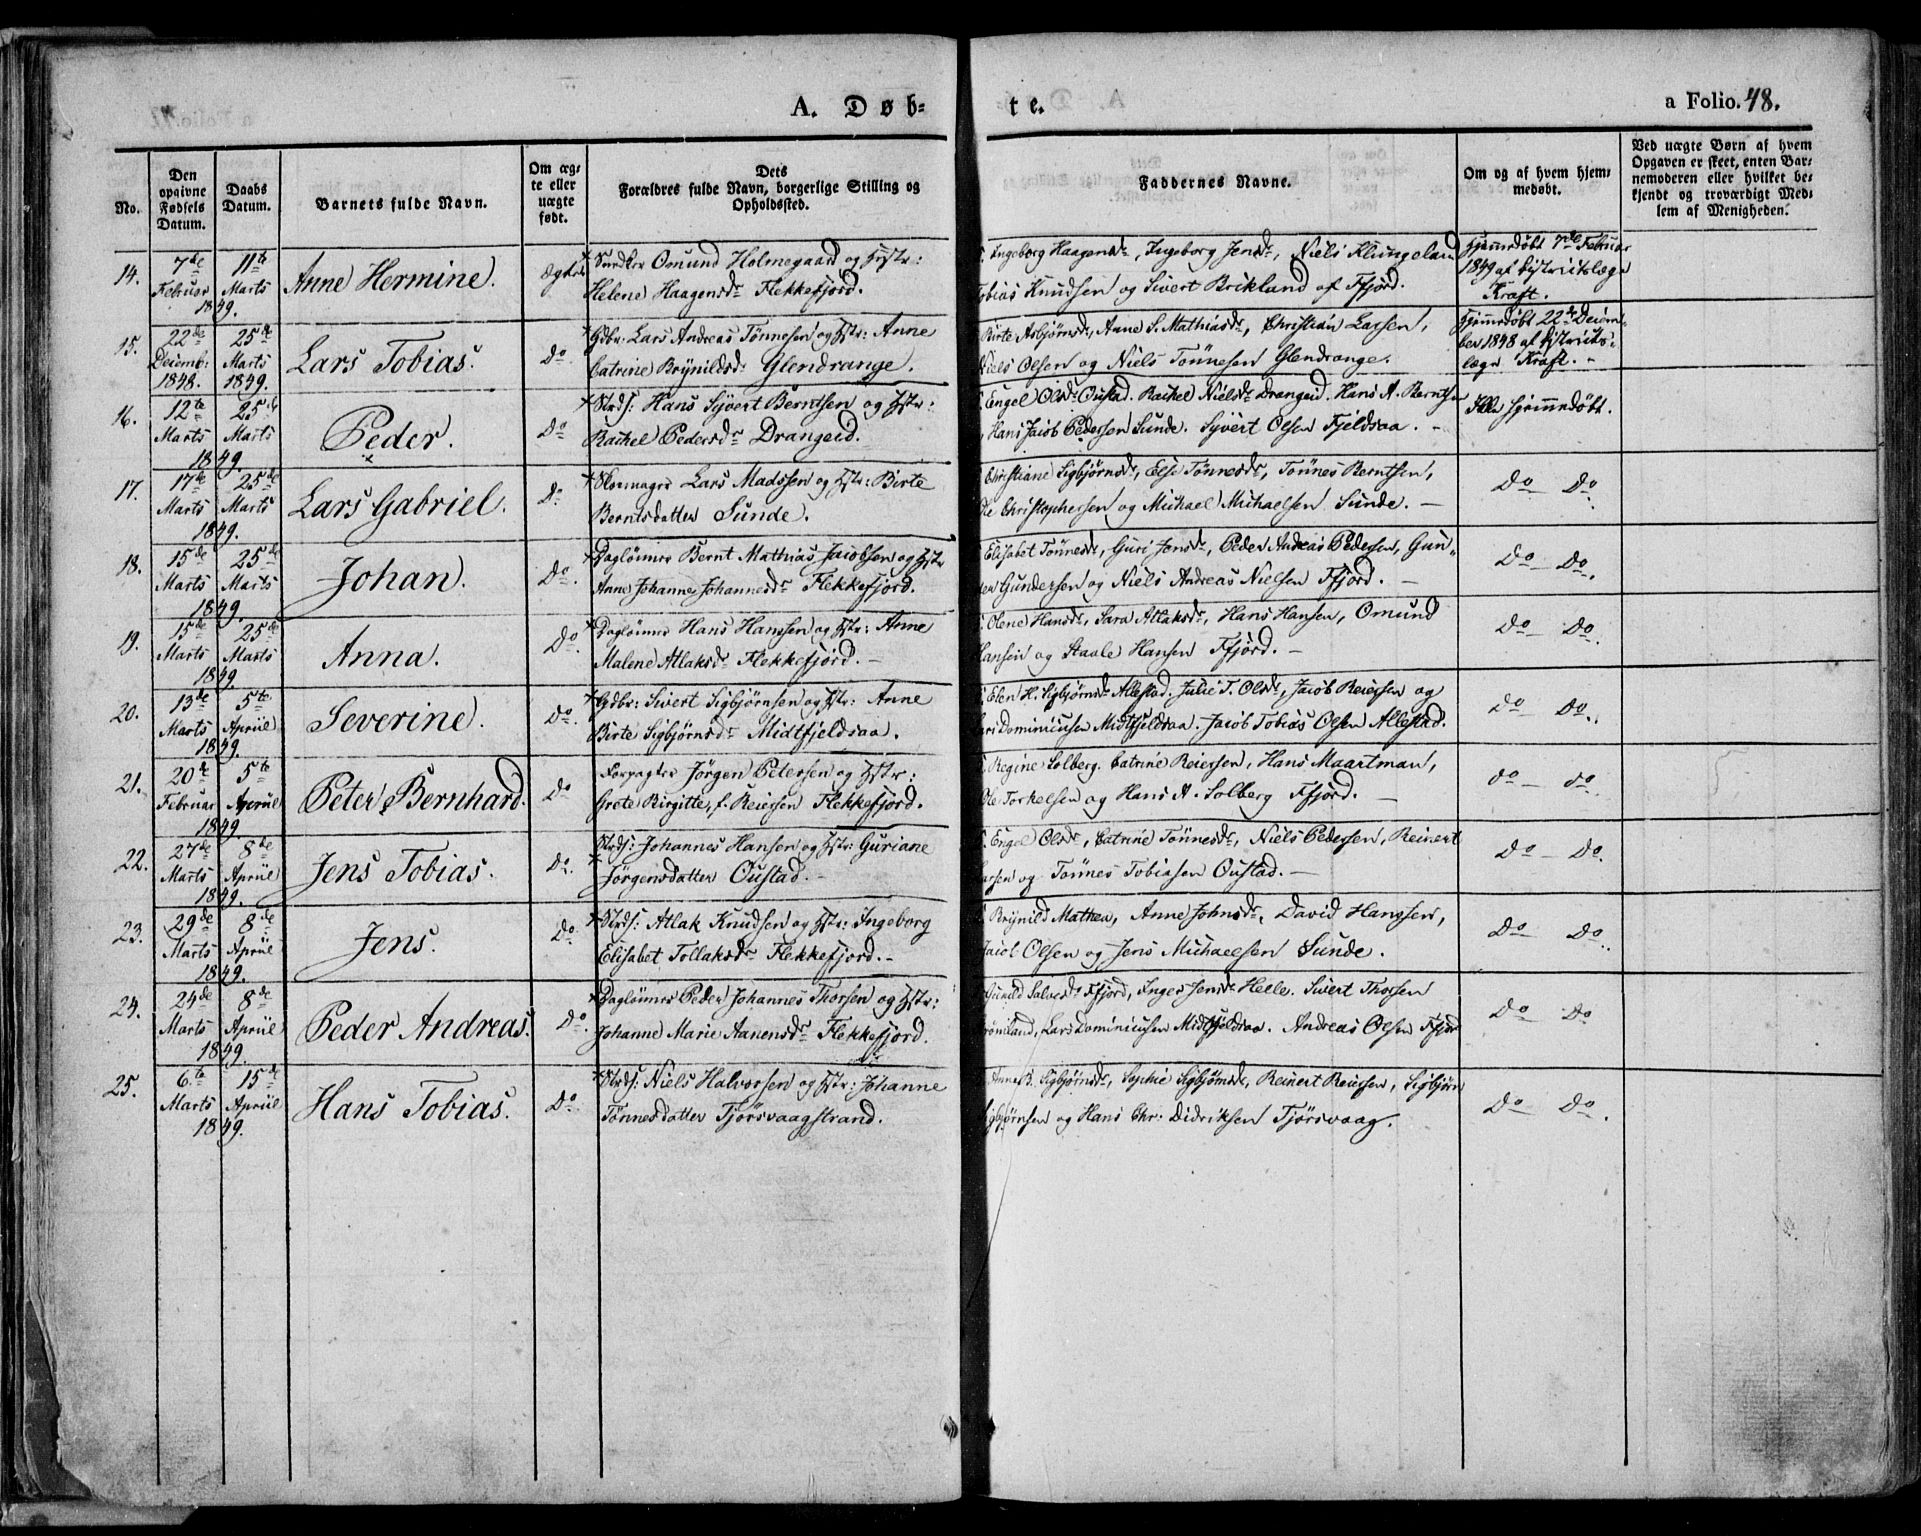 A. Døb-
te.
a Folio. 48.
No.
Den opgivne Fødsels Datum.
Daabs Datum.
Barnets fulde Navn.
Om ægte eller uægte født.
Dets Forældres fulde Navn, borgerlige Stilling og Opholdssted.
Faddernes Navne.
Om og af hvem hjemmedøbt.
Ved uægte Børn af hvem Opgaven er skeet, enten Barnemoderen eller hvilket bekjendt og troværdigt Medlem af Menigheden.
14. 7de Februar 1849. 11te Marts Anne Hermine. Ægte
Omund Holmegaard og Hstr:
Helene Haagensdr Flekkefjord.
Ingeborg Haagensdr, Ingeborg Jensdr, Niels Klungeland
Tobias Knudsen og Sivert Brikland af Ffjord.
Hjemmedøbt 7de Februar
1849 af Distriktslæge
Kraft.
15. 22de Decemb: 1848. 25de Marts 1849. Lars Tobias. Do
Gdbr: Lars Andreas Tönnesen og Hstr: Anne
Catrine Brÿnildsdr Glendrange.
Birte Asbjørnsdr, Anne S. Mathiasdr, Christian Larsen,
Niels Olsen og Niels Tönnesen Glendrange.
Hjemmedøbt 22de Decem-
ber 1848 af Distrikts-
læge Kraft. -
16. 12te Marts 1849. 25de Marts Peder. Do
Strds: Hans Sÿvert Berntsen og Hstr:
Rachel Pedersdr Drangeid.
Engel Olsdr Oustad. Rachel Nielsdr Drangeid. Hans A. Berntsen
Hans Jacob Pedersen Sunde. Sÿvert Olsen Fjeldsaa. -
Ikke hjemmedøbt.
17. 17te Marts 1849. 25de Marts Lars Gabriel. Do
Lars Madssen og Hstr: Birte
Berntsdatter Sunde.
Christiane Sigbjørnsdr, Else Tönnesdr, Tönnes Berntsen,
Ole Christophersen og Michael Michaelsen Sunde. -
Do - Do.
18. 15de Marts 1849. 25de Marts Johan. Do.
Daglönner Bernt Mathias Jacobsen og Hstr
Anne Johanne Johannesdr Flekkefjord.
Elisabet Tönnesdr, Guri Jensdr, Peder Andreas Pedersen, Gun-
der Gundersen og Niels Andreas Nielsen Ffjord. -
Do - Do.
19. 15de Marts 1849. 25de Marts Anna. Do.
Daglönner Hans Hanssen og Hstr: Anne
Malene Atlaksdr Flekkefjord. -
Olene Hansdr, Sara Atlaksdr, Hans Hansen, Omund
Hansen og Staale Hansen Ffjord. -
Do - Do.
20. 13de Marts 1849. 5te Apriil Severine. Do.
Gdbr: Sivert Sigbjørnsen og Hstr: Anne
Birte Sigbjørnsdr Midtfjeldsaa.
Elen H. Sigbjørnsdr Allestad. Julie T. Olsdr, Jacob Reiersen og
Lars Dominicusen Midtfjeldsaa. Jacob Tobias Olsen Allestad.
Do - Do.
21. 20de Februar 1849. 5te Apriil Peter Bernhard. Do
Forpagter Jörgen Petersen og Hstr:
Grete Birgitte, f. Reiersen Flekkefjord.
Regine Solberg. Catrine Reiersen, Hans Maartman,
Ole Torkelsen og Hans A. Solberg Ffjord. -
do - do.
22. 27de Marts 1849. 8de Apriil Jens Tobias. Do.
Strds: Johannes Hansen og Hstr: Guriane
Jörgensdatter Oustad. -
Engel Olsdr, Catrine Tönnesdr, Niels Pedersen, Reinert
Larsen og Tönnes Tobiasen Oustad. -
Do - Do.
23. 29de Marts 1849. 8de Apriil Jens. Do.
Strds: Atlak Knudsen og Hstr: Ingeborg
Elisabet Tollaksdr Flekkefjord. -
Brÿnild Mathea, Anne Johnsdr, David Hanssen,
Jacob Olsen og Jens Michaelsen Sunde.
Do - Do.
24. 24de Marts 1849. 8de Apriil Peder Andreas. Do.
Daglönner Peder Johannes Thorsen og Hstr:
Johanne Marie Aanensdr Flekkefjord.
Gunild Salvesdr Ffjord, Inger Jensdr Helle. Sivert Thorsen
Lars Dominicusen Midtfjeldsaa. Andreas Olsen Ffjord
Do - Do
25. 6te Marts 1849. 15de Apriil Hans Tobias. Do.
Strds: Niels Halvorsen og Hstr: Johanne
Tönnesdatter Tjørsvaagstrand.
Anne B. Sigbjørnsdr, Sophie Sigbjørnsdr, Reinert Reiersen, Sigbjörn
Sigbjørnsen og Hans Chr: Didriksen Tjörsvaag.
Do - Do.